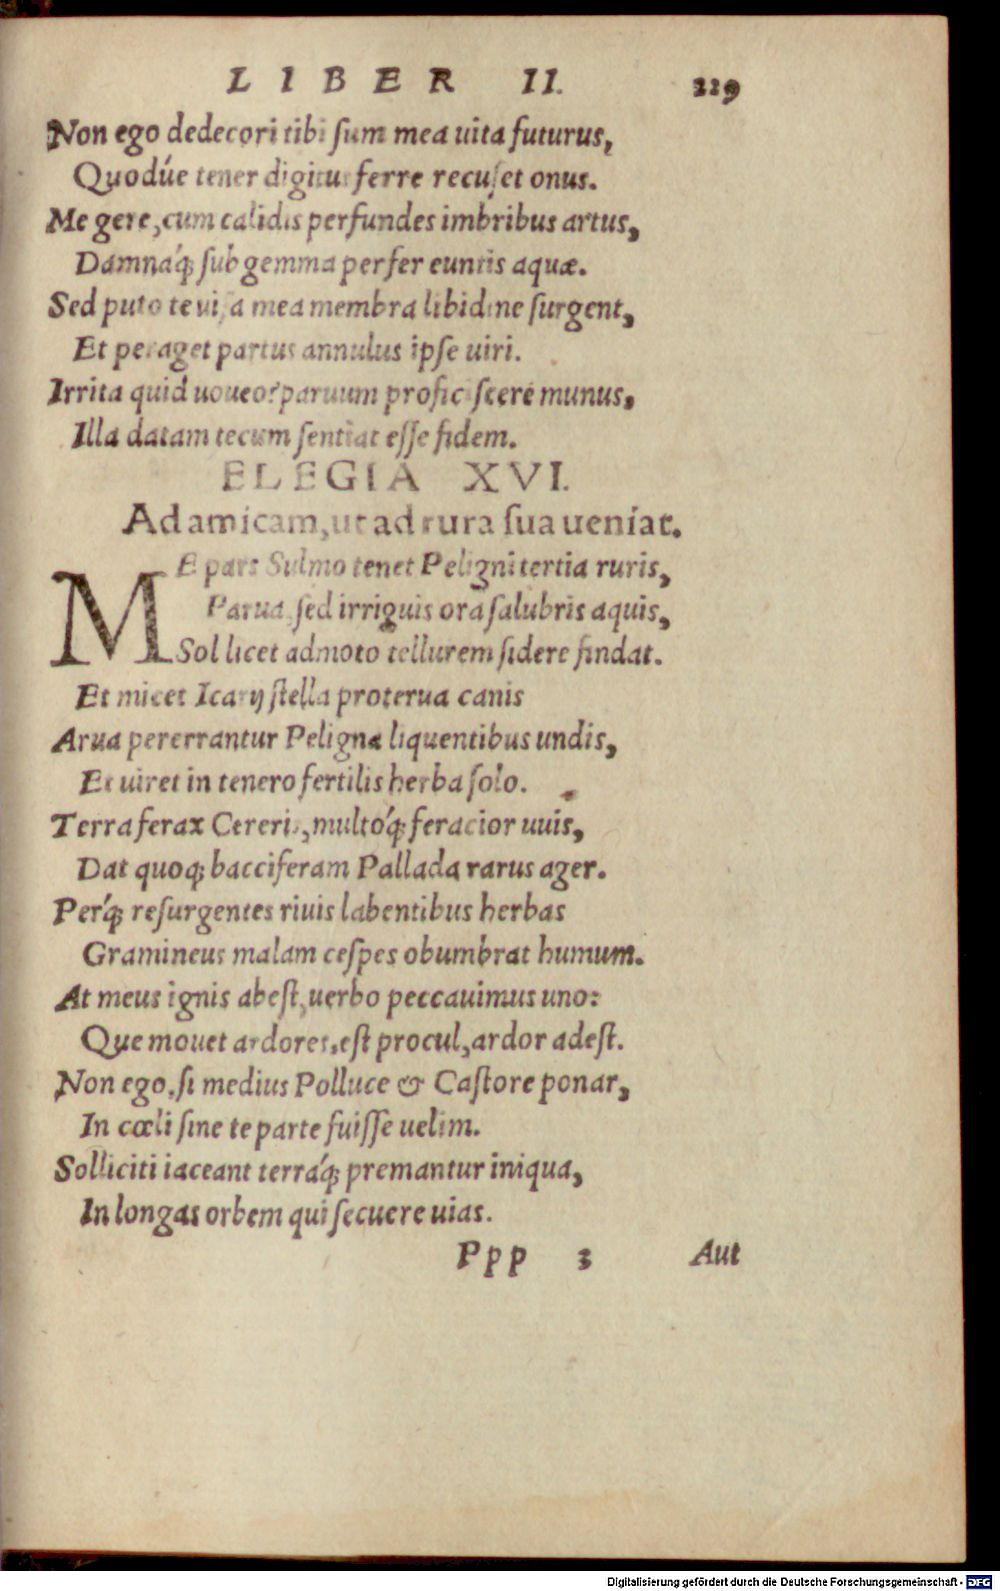 LIBER II. 229
Non ego dedecori tibi sum mea uita futurus,
Quodúe tener digitus ferre recuset onus.
Me gere, cum calidis perfundes imbribus artus,
Damnáq; sub gemma perfer euntis aquæ.
Sed puto te uisa mea membra libidine surgent,
Et peraget partus annulus ipse uiri.
Irrita quid uoueo? paruum proficiscere munus,
Illa datam tecum sentiat esse fidem.
ELEGIA XVI.
Ad amicam, ut ad rura sua ueniat.
ME pars Sulmo tenet Peligni tertia ruris,
Parua, sed irriguis ora salubris aquis,
Sol licet admoto tellurem sidere findat.
Et micet Icarij stella proterua canis
Arua pererrantur Peligna liquentibus undis,
Et uiret in tenero fertilis herba solo.
Terra ferax Cereris, multóq; feracior uuis,
Dat quoq; bacciferam Pallada rarus ager.
Perq́; resurgentes riuis labentibus herbas
Gramineus malam cespes obumbrat humum.
At meus ignis abest, uerbo peccauimus uno:
Que mouet ardores, est procul, ardor adest.
Non ego, si medius Polluce & Castore ponar,
In cœli sine te parte fuisse uelim.
Solliciti iaceant terráq; premantur iniqua,
In longas orbem qui secuere uias.
Ppp 3 Aut
Digitalisierung gefördert durch die Deutsche Forschungsgemeinschaft - DFG